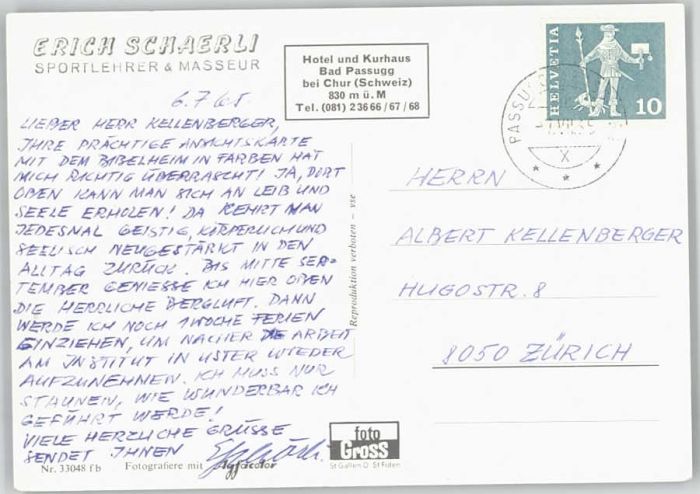 ERICH SCHAERLI
SPORTLEHRER & MASSEUR
Hotel und Kurhaus
Bad Passugg
bei Chur (Schweiz)
830 m ü. M
Tel. (081) 2 36 66 / 67 / 68
HELVETIA
10
PASSUGG
X
6.7.65.
LIEBER HERR KELLENBERGER,
IHRE PRÄCHTIGE ANSICHTSKARTE
MIT DEM BIBELHEIM IN FARBEN HAT
MICH RICHTIG ÜBERRASCHT! JA, DORT
OBEN KANN MAN SICH AN LEIB UND
SEELE ERHOLEN! DA KEHRT MAN
JEDESMAL GEISTIG, KÖRPERLICH UND
SEELISCH NEUGESTÄRKT IN DEN
ALLTAG ZURÜCK. BIS MITTE SEP-
TEMBER GENIESSE ICH HIER OBEN
DIE HERRLICHE BERGLUFT. DANN
WERDE ICH NOCH 1 WOCHE FERIEN
EINZIEHEN, UM NACHER DIE ARBEIT
AM INSTITUT IN USTER WIEDER
AUFZUNEHMEN. ICH MUSS NUR
STAUNEN, WIE WUNDERBAR ICH
GEFÜHRT WERDE!
VIELE HERZLICHE GRÜSSE
SENDET IHNEN
Nr. 33048 fb Fotografiere mit Agfacolor
Reproduktion verboten - vse
foto
Gross
St Gallen O St Fiden
HERRN
ALBERT KELLENBERGER
HUGOSTR. 8
8050 ZÜRICH